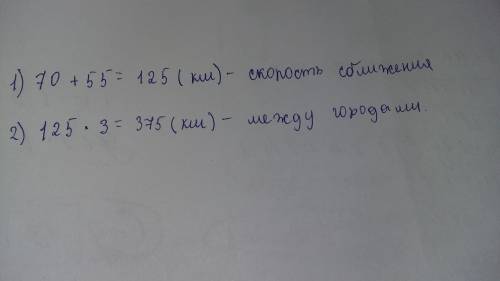 1) 70 + 55 = 125 (км) - скорость сближения
2) 125 · 3 = 375 (км) - между городами.